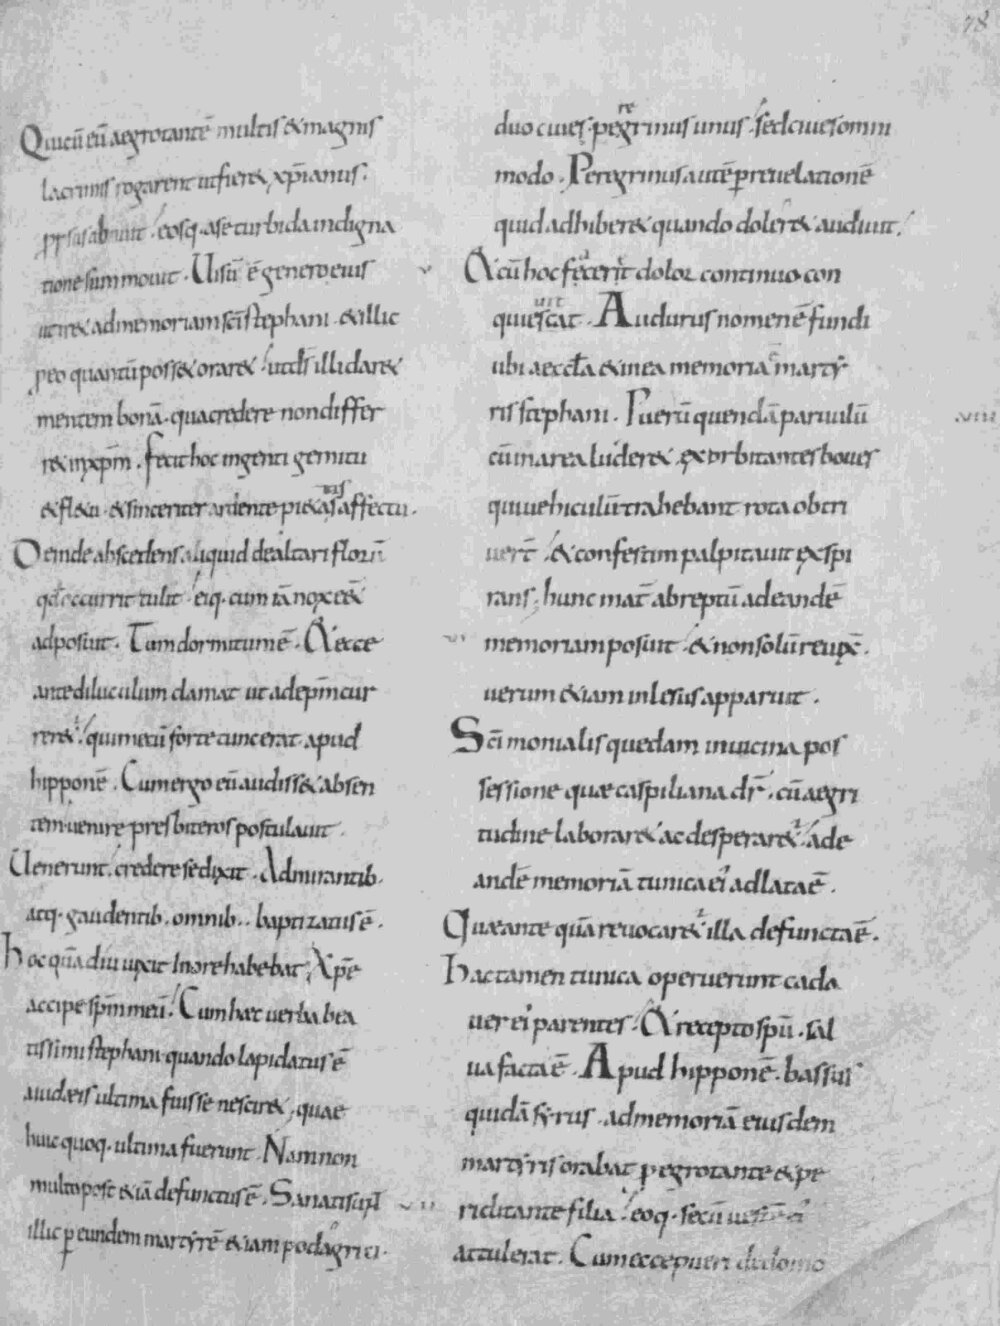 78
Quicū eū aegrotantē multis & magnis
lacrimis rogarent ut fier& xp̄ianus.
prorsus abnuit. eosq. a se turbida indigna
tione summouit. Uisū ē genero eius
ut ir& ad memoriam sc̄i stephani. & illic
p eo quantū poss& orar&. ut d̄s illi dar&
mentem bonā. qua credere non differ
r& in xp̄m. Fecit hoc ingenti gemitu
& fl&u. & sinceriter ardente pi&atis affectu.
Deinde abscedens aliquid de altari florū
qd̄ occurrit tulit. eiq. cum iā nox ess&
adposuit. Tum dormitum ē. & ecce
ante diluculum clamat ut ad ep̄m cur
rer&. qui mecū forte tunc erat apud
hipponē. Cum ergo eū audiss& absen
tem. uenire presbiteros postulauit.
Uenerunt. credere se dixit. Admirantib.
atq. gaudentib. omnib.. baptizatus ē.
Hoc quādiu uixit In ore habebat. Xp̄e
accipe sp̄m meū. Cum haec uerba bea
tissimi stephani quando lapidatus ē
a iudaeis ultima fuisse nescir&. quae
huic quoq. ultima fuerunt. Nam non
multo post &iā defunctus ē. Sanati st
illic p eundem martyrē &iam podagri ci.
duo ciues. peregrinus unus. sed ciues omni
modo. Peregrinus autē p reuelationē
quid adhiber& quando doler& audiuit.
& cū hoc fecerit dolor continuo con
quieuit. Audurus nomen ē fundi
ubi aeccl̄a & in ea memoria marty
ris stephani. Puerū quendā paruulū
cū in area luder&. exorbitantes boues
qui uehiculū trahebant rota obtri
uert̄. & confestim palpitauit exspi
rans. hunc mat̄ abreptū ad eandē
memoriam posuit. & non solū reuix̄.
uerum &iam inlesus apparuit.
Sc̄i monialis quedam in uicina pos
sessione quae caspiliana dr̄. cū aegri
tudine laborar& ac desperar&. ad e
andē memoriā tunica ei adlata ē.
Quae ante quā reuocar& illa defuncta ē.
Hac tamen tunica operuerunt cada
uer ei parentes. & recepto spū. sal
ua facta ē. Apud hipponē. bassus
quidā syrus. ad memoriā eiusdem
martyris orabat p egrotante & pe
riclitante filia. eoq. secū uestē ei
attulerat. Cum ecce pueri de domo
v
vi
vii
viii